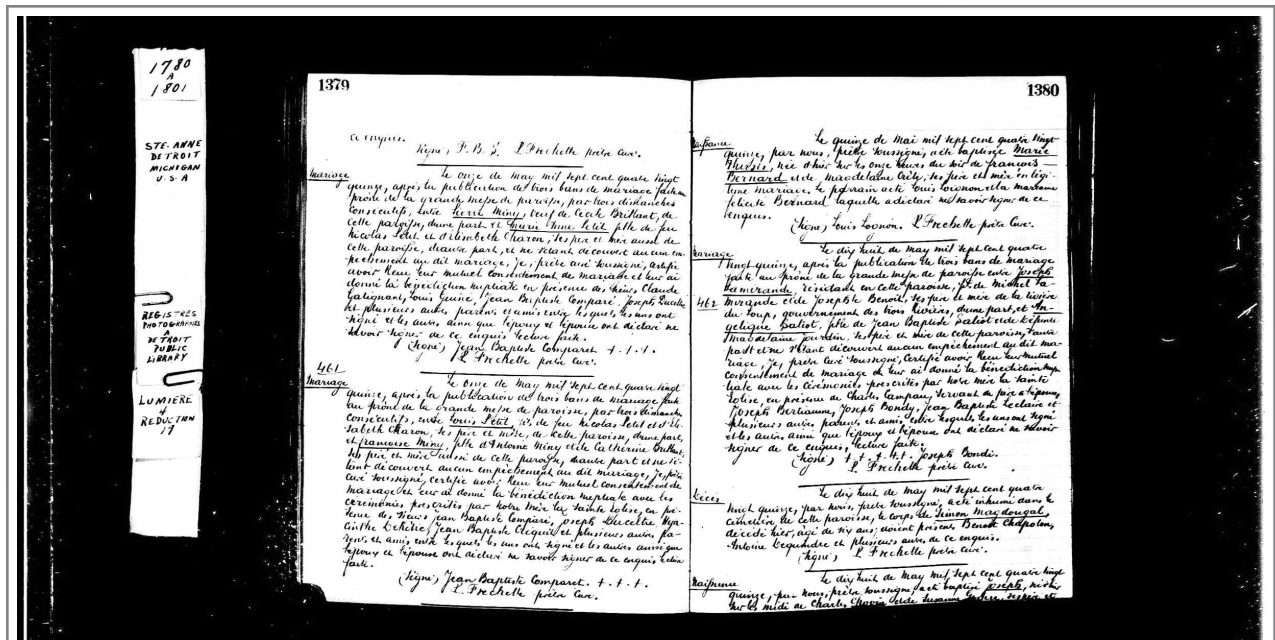 1780
A
1801
STE-ANNE
DETROIT
MICHIGAN
U.S.A
REGISTRES
PHOTOGRAPHIES
DETROIT
PUBLIC
LIBRARY
LUMIERE
4
REDUCTION
19
1379
ce enquis.
Signé, F. B. L. Frechette prêtre Curé.
Mariage
Le onze de May mil sept cent quatre vingt
quinze, après la publication de trois bans de mariage faite au
prône de la grande messe de paroisse, par trois dimanches
consécutifs, entre Pierre Miny, veuf de Cecile Brillant, de
cette paroisse, d'une part et Marie Anne Petit fille de feu
Nicolas Petit et d'Elisabeth Charon, ses père et mère aussi de
cette paroisse, d'autre part, et ne s'étant découvert aucun em-
pêchement au dit mariage, je, prêtre curé soussigné, certifie
avoir Reçu leur mutuel consentement de mariage et leur ai
donné la bénédiction nuptiale en présence des sieurs Claude
Louis Jean Baptiste Comparé, Joseph
et plusieurs autres parens et amis entre lesquels les uns ont
signé et les autres ainsi que l'époux et l'épouse ont déclaré ne
savoir signer de ce enquis lecture faite.
(Signé) Jean Baptiste Comparet. + . + . + .
L. Frechette prêtre Curé.
461
Mariage
Le onze de May mil sept cent quatre vingt
quinze, après la publication de trois bans de mariage faite
au prône de la grande messe de paroisse, par trois dimanches
consécutifs, entre Louis Petit, fs. de feu Nicolas Petit et d'Eli-
sabeth Charon, ses père et mère, de cette paroisse, d'une part,
et francoise Miny, fille d'Antoine Miny et de Catherine Brillant,
ses père et mère aussi de cette paroisse, d'autre part et ne s'é-
tant découvert aucun empêchement au dit mariage, Je, prêtre
Curé soussigné, certifie avoir Reçu leur mutuel consentement de
mariage et leur ai donné la bénédiction nuptiale avec les
cérémonies prescrites par notre Mère la Sainte Eglise, en pré-
sence des sieurs Jean Baptiste Comparé, Joseph Hya-
cinthe Jean Baptiste et plusieurs autres pa-
rens et amis entre lesquels les uns ont signé et les autres ainsi que
l'époux et l'épouse ont déclaré ne savoir signer de ce enquis lecture
faite.
(Signé) Jean Baptiste Comparet. + . + . + .
L. Frechette prêtre Curé.
1380
Naissance
Le quinze de Mai mil sept cent quatre vingt
quinze, par nous, prêtre soussigné, a été baptisée Marie
née d'hier sur les onze heures du soir de francois
Bernard et de Magdelaine ses père et mère en légi-
time mariage. Le parrain a été Louis Loignon et la marraine
felicité Bernard laquelle a déclaré ne savoir signer de ce
enquis.
(Signé) Louis Loignon. L. Frechette prêtre Curé.
Mariage
Le dix huit de May mil sept cent quatre
vingt quinze, après la publication de trois bans de mariage
faite au prône de la grande messe de paroisse entre Joseph
Lamerande, résidant en cette paroisse, fs. de Michel La-
462
merande et de Josephte Benoit, ses père et mère de la Rivière
du Loup, gouvernement des trois Rivières, d'une part, et An-
gelique Saliot, fille de Jean Baptiste Saliot et de défunte
Magdelaine Jourdin, ses père et mère de cette paroisse, d'autre
part et ne s'étant découvert aucun empêchement au dit ma-
riage, Je, prêtre curé soussigné, certifie avoir Reçu leur mutuel
consentement de mariage et leur ai donné la bénédiction nup-
tiale avec les cérémonies prescrites par notre mère la Sainte
Eglise, en présence de Charles Campau, servant de père à l'épouse,
Joseph Berthiaume, Joseph Bondy, Jean Baptiste Leclaire et
plusieurs autres parens et amis entre lesquels les uns ont signé
et les autres ainsi que l'époux et l'épouse ont déclaré ne savoir
signer de ce enquis, lecture faite.
(Signé) + . + . + . + . Joseph Bondi.
L. Frechette prêtre Curé.
Décès
Le dix huit de May mil sept cent quatre
vingt quinze, par nous, prêtre soussigné, a été inhumé dans le
cimetière de cette paroisse, le corps de Simon Magdougal,
décédé hier, âgé de dix ans; étoient présens Benoit Chapoton,
Antoine Deguindre et plusieurs autres de ce enquis.
(Signé) L. Frechette prêtre Curé.
Naissance
Le dix huit de May mil sept cent quatre vingt
quinze, par nous, prêtre soussigné, a été baptisé Joseph, né hier
sur les midi de Charles Chovin et de Susanne ses père et